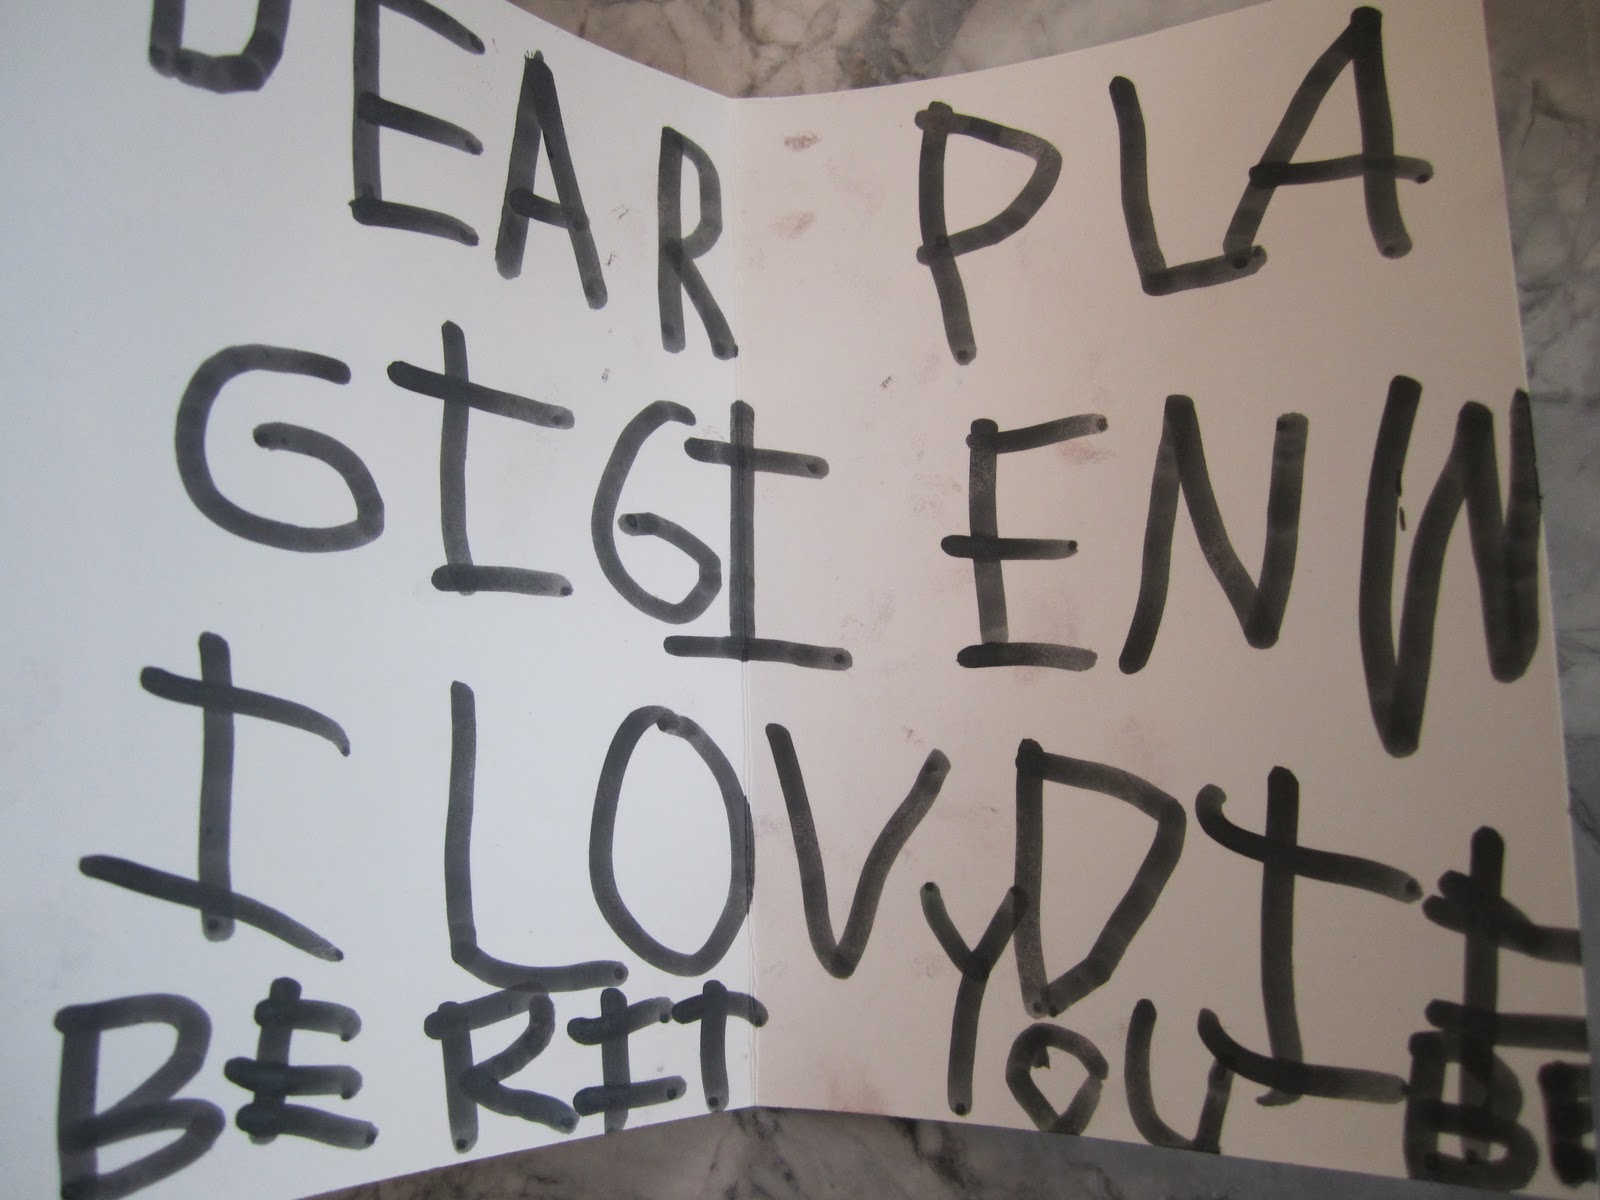 DEAR PLA
GIGI ENW
I LOV DIE
BERIT YOU BE